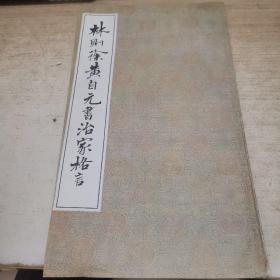 林则徐黄自元书治家格言